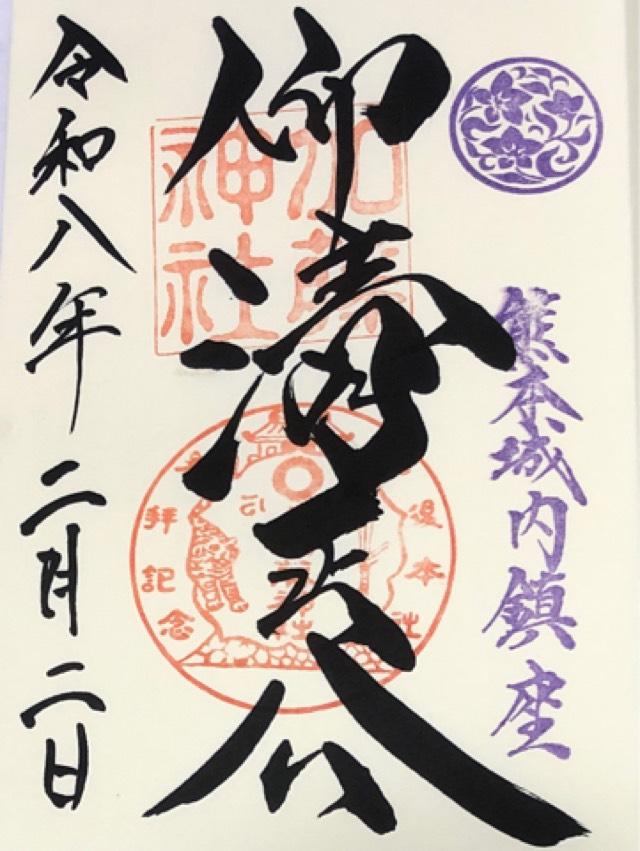 熊本城内鎮座
仰清正公
加藤神社
拝記念
令和八年二月二日